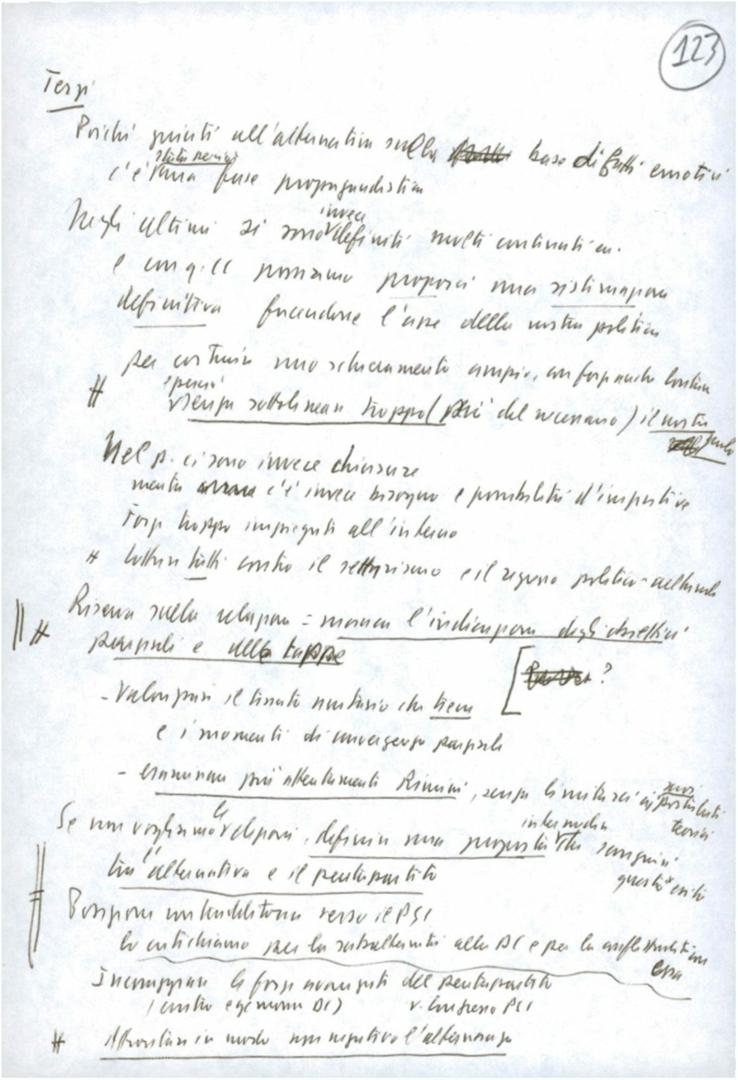 123
Terzi
Poiché giunti all'alternativa sulla base di fatti emotivi
c'è stata una fase propagandistica
Negli ultimi si sono invece definiti molti contenuti
e con q. CC possiamo proporci una sistemazione
definitiva facendone l'asse della nostra politica
per costruire uno schieramento ampio, con forze anche
senza sottolineare troppo (più del necessario) il nostro ruolo
Nel p. ci sono invece chiusure
mentre c'è invece bisogno e possibilità d'iniziativa
Forze troppo impiegate all'interno
lottare tutti contro il settarismo e il regresso politico-culturale
Riserva sulla relazione = manca l'indicazione degli obiettivi
parziali e delle tappe
?
- Valorizzare il tessuto unitario che tiene
e i momenti di convergenza parziale
- esaminare più attentamente Rimini, senza limitarci ai suoi postulati
teorici
Se non vogliamo, definire una proposta intermedia
tra l'alternativa e il pentapartito
questo esito
Posizione contraddittoria verso il PSI
lo critichiamo per la subalternità alla DC e per la
Incoraggiare le forze avanzate del pentapartito
(contro egemonia DC) v. Congresso PSI
Affrontare in modo non negativo l'alternanza